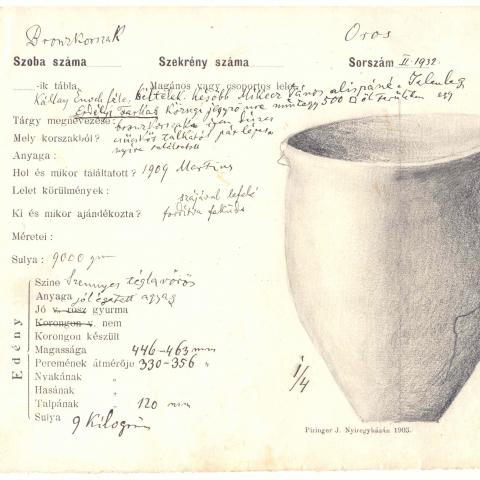 Bronzkorszak
Oros
Szoba száma
Szekrény száma
Sorszám II. 1932.
-ik tábla
Magános vagy csoportos lelet
Kállay féle, beltelek. később Mikecz János alispáné. Jelenleg
Erdélyi Farkas Községi jegyző úré mintegy 500 □ öl területen egy
Tárgy megnevezése:
bronzkorszaki
Mely korszakból?
nyire találtatott
Anyaga:
Hol és mikor találtatott? 1909 Martius
Lelet körülmények: szájával lefelé
Ki és mikor ajándékozta? fordítva feküdt
Méretei:
Sulya: 9000 gm
Edény
Szine Szennyes téglavörös
Anyaga jól égetett agyag
Jó v. rosz gyurma
Korongon v. nem
Korongon készült
Magassága 446-463 mm
Peremének átmérője 330-356 "
Nyakának "
Hasának "
Talpának " 120 mm
Sulya 9 Kilogrm
1/4
Piringer J. Nyiregyházán 1903.